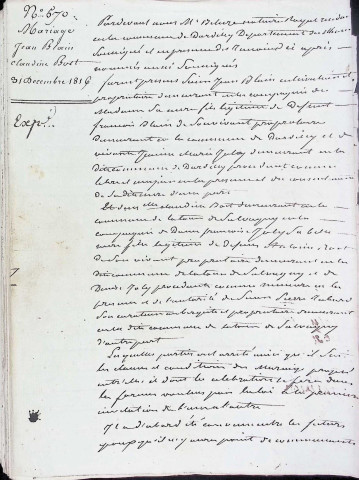 N.° 570
Mariage
Jean Blain
Claudine Bost
31 Décembre 1816
Exp.
Pardevant nous M.e notaire Royal
en la commune de Dardilly Département du Rhône
Soussigné et en présence des témoins ci après
nommés aussi soussignés
furent présens Sieur Jean Blain cultivateur et
propriétaire demeurant en la compagnie de
Madame sa mère fils légitime de Défunt
françois Blain de son vivant propriétaire
demeurant en la commune de Dardilly et de
vivante Jeanne Marie Jolly demeurant en la
dite commune de Dardilly procédant comme
libre et majeur en la présence et du consentement
de sa dite mère d'une part
Et Demlle Claudine Bost demeurant en la
commune de la tour de Salvagny en la
compagnie de Dame françoise Joly sa belle
mère fille légitime de Défunts Antoine Bost
de son vivant propriétaire demeurant en la
dite commune de la tour de Salvagny et de
Denise Joly procédante comme mineure en la
présence et de l'autorité de Sieur Pierre
son curateur propriétaire demeurant
en la dite commune de la tour de Salvagny
d'autre part
Lesquelles parties ont arrêté ainsi qu'il suit
les clauses et conditions du Mariage proposé
entr'elles et dont la célébration se fera dans
les formes voulues par la loi à la première
invitation de l'une et l'autre
Il a d'abord été convenu entre les futurs
époux qu'il n'y aura point de communauté